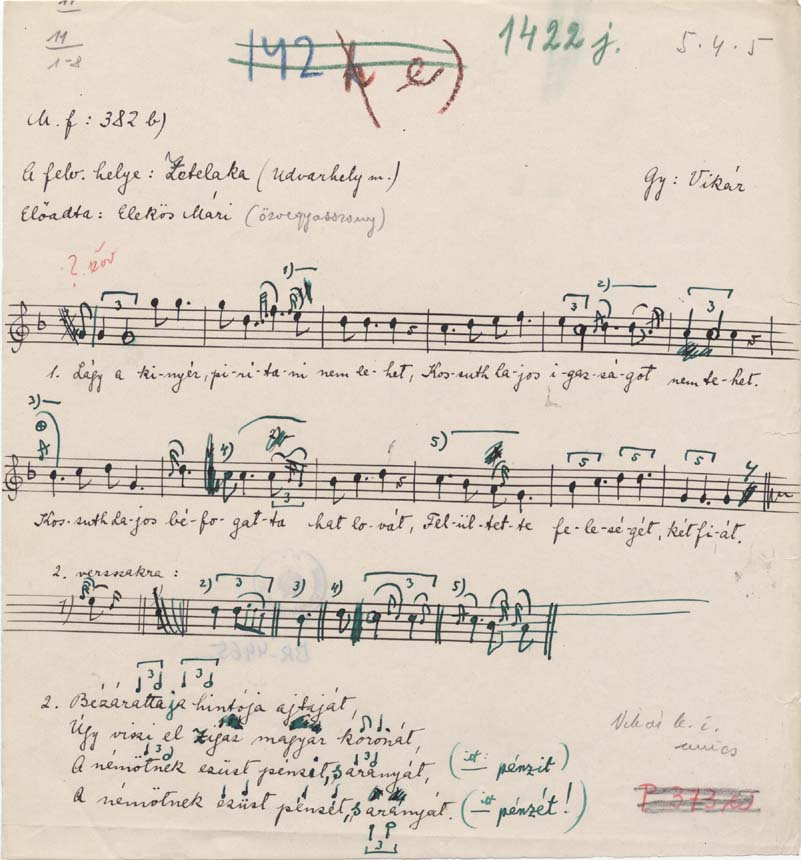 11
11
1-8
142 (e)
1422 j.
5.4.5
M. f: 382 b)
A felv. helye: Zetelaka (Udvarhely m.)
Gy: Vikár
Előadta: Elekös Mári (özvegyasszony)
?
1)
3
2)
3
3
1. Lágy a ki-nyér, pi-ri-ta-ni nem le-het, Kos-suth La-jos i-gaz-sá-got nem te-het.
3)
4)
3
5)
5
5
5
Kos-suth La-jos bé-fo-gat-ta hat lo-vát, Fel-ül-tet-te fe-le-sé-gét, két fi-át.
2. versszakra:
1)
2) 3
3)
4)
3
5)
BR-4465
3 3
2. Bézáratta ja hintója ajtaját,
Úgy viszi el zigaz magyar koronát,
3 3
A németnek ezüst pénzit, saranyát, (itt: pénzit)
A németnek ezüst pénzét, saranyát. (itt pénzét!)
3
Vikár
P 373